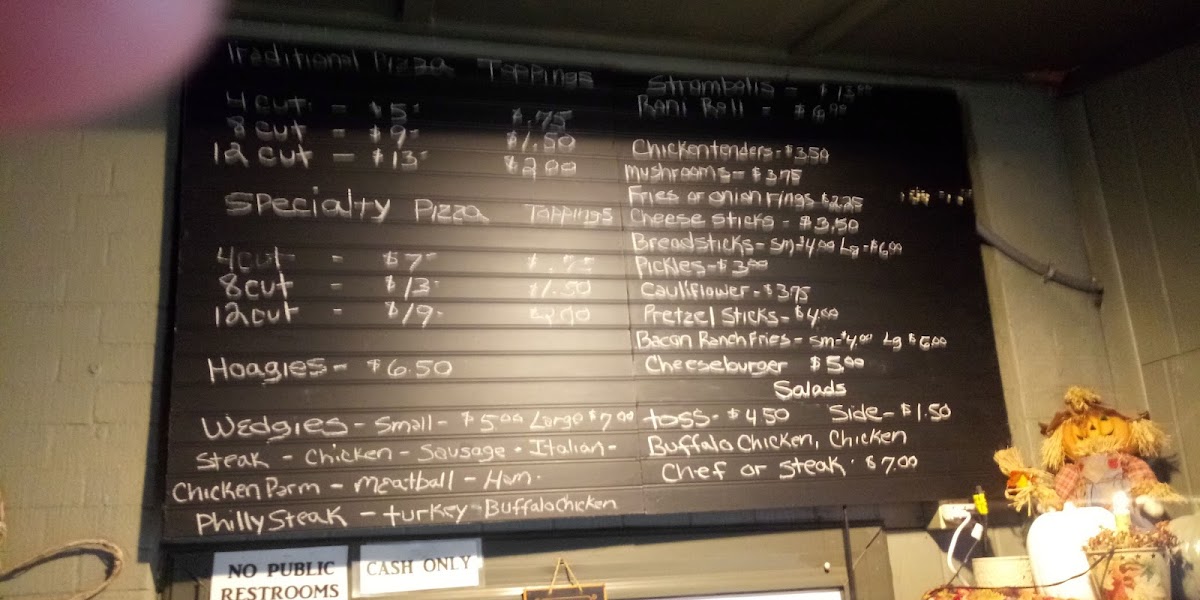 Traditional Pizza Toppings
4 cut - $5 $.75
8 cut - $9 $1.50
12 cut - $13 $2.00
Specialty Pizza Toppings
4cut - $7 $.75
8cut - $13 $1.50
12cut - $19 $2.00
Hoagies - $6.50
Wedgies - Small - $5.00 Large $7.00
Steak - Chicken - Sausage - Italian -
Chicken Parm - Meatball - Ham.
Philly Steak - turkey - Buffalo Chicken
Strombolis - $13.00
Roni Roll -
Chickentenders - $3.50
Mushrooms - $3.75
Fries or onion rings $2.25
Cheese sticks - $3.50
Breadsticks - Sm - $4.00 Lg - $6.00
Pickles - $3.00
Cauliflower - $3.75
Pretzel Sticks - $4.00
Bacon Ranch Fries - Sm - $4.00 Lg $6.00
Cheeseburger $5.00
Salads
toss - $4.50 Side - $1.50
Buffalo Chicken, Chicken
Chef or Steak. $7.00
NO PUBLIC
RESTROOMS
CASH ONLY